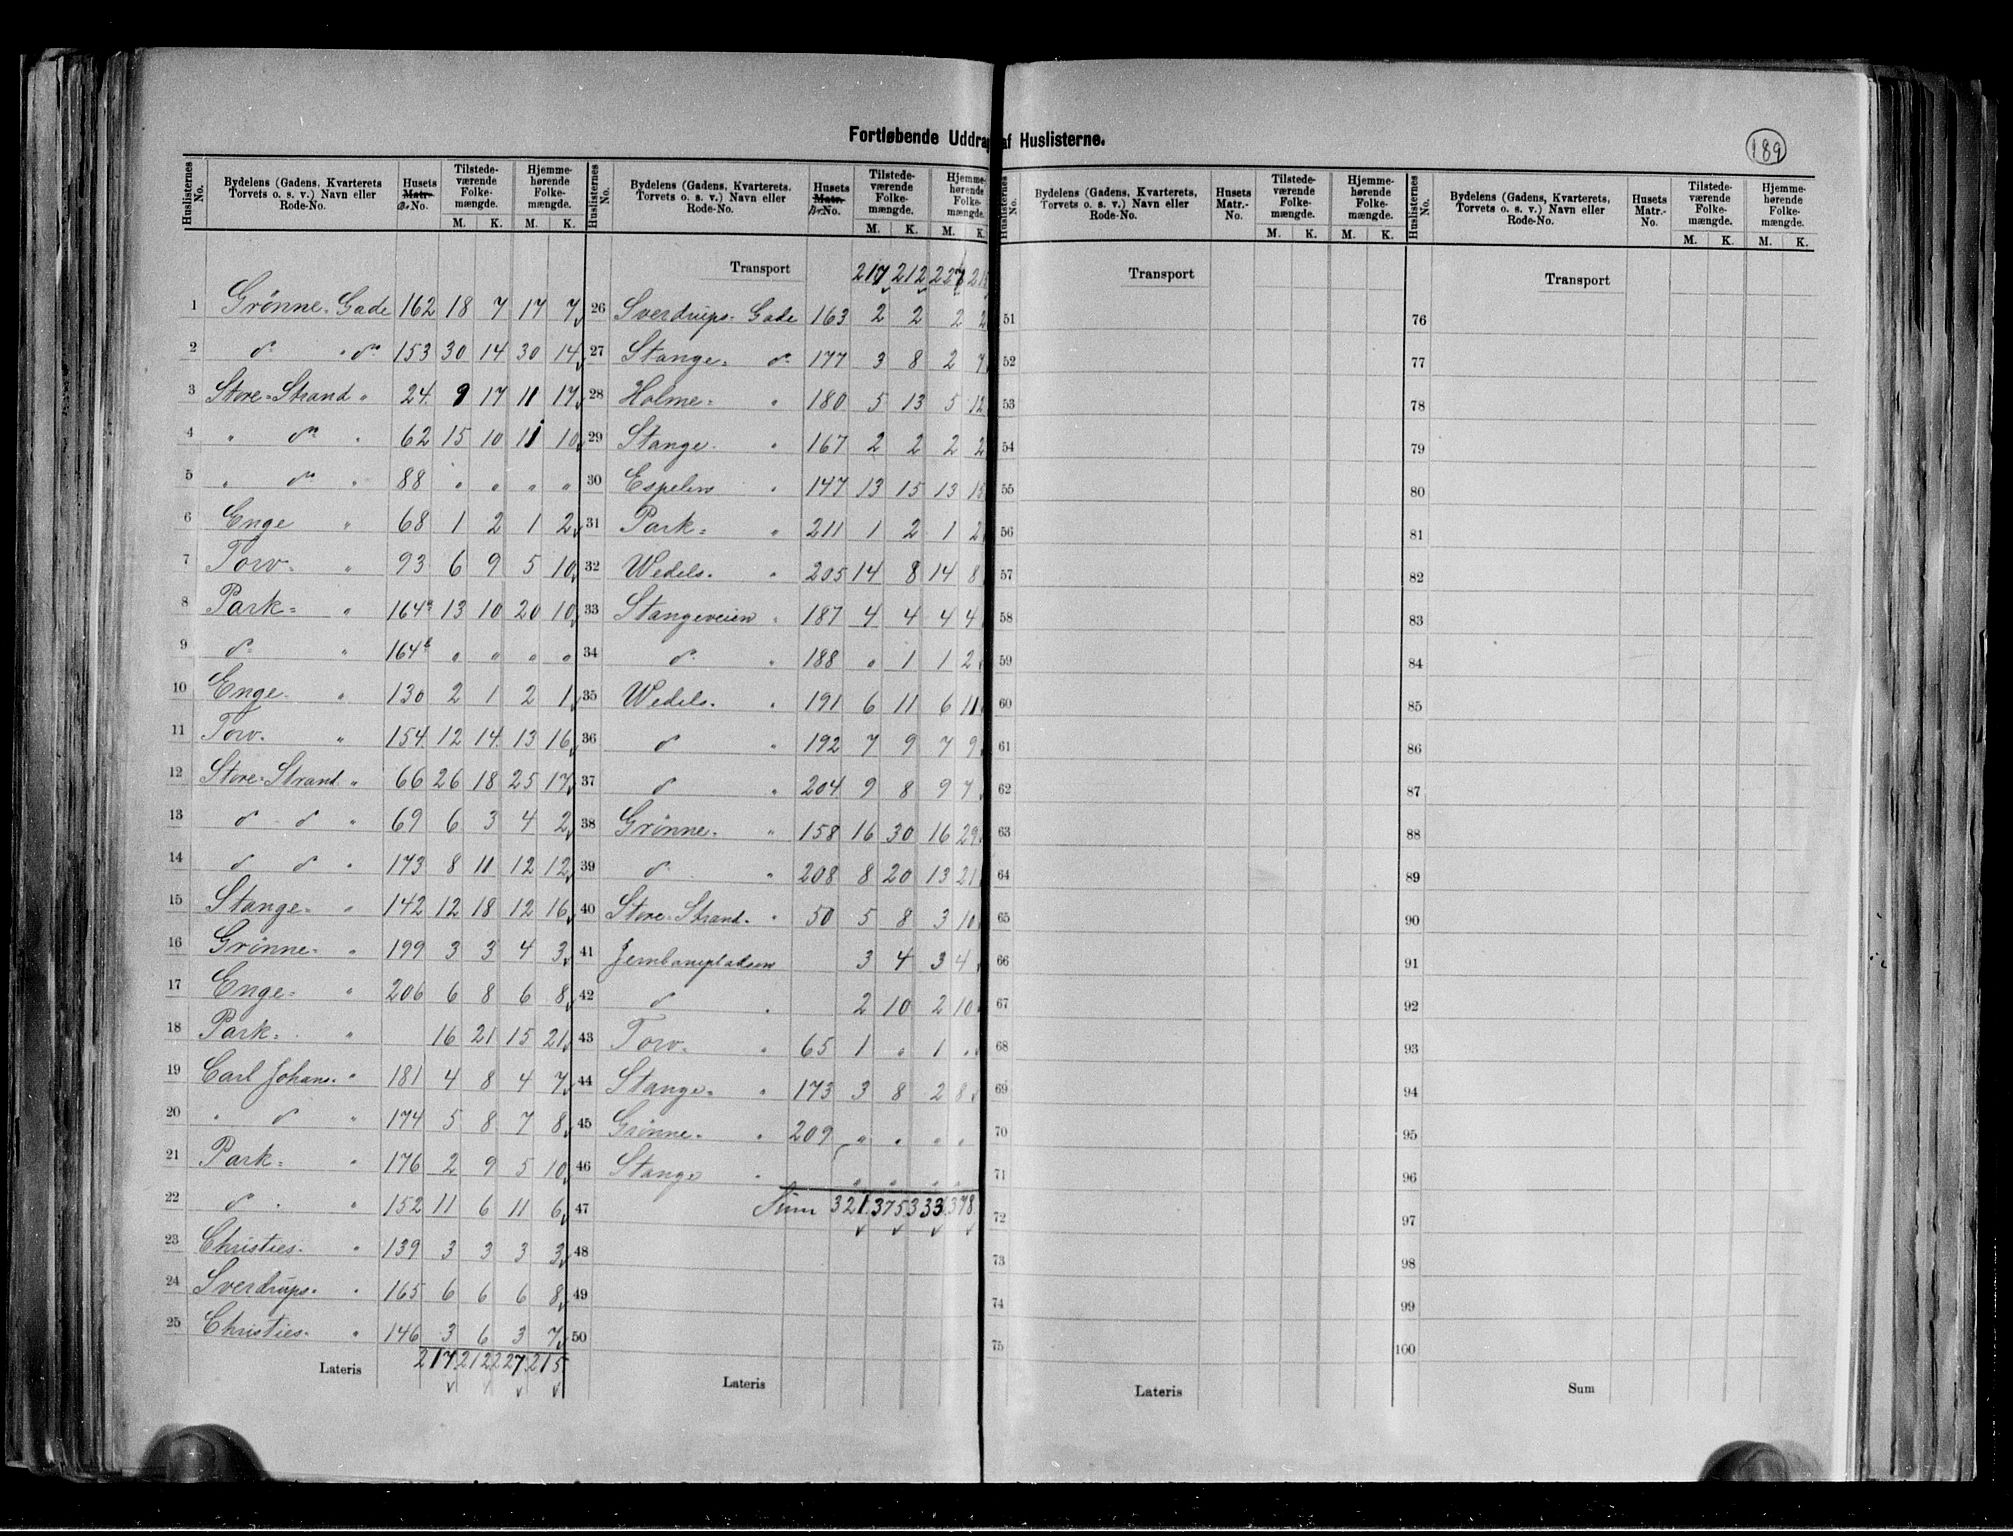 Fortløbende Uddrag af Huslisterne.
189
Huslisternes No. | Bydelens (Gadens, Kvarterets Torvets o. s. v.) Navn eller Rode-No. | Husets Matr.- No. | Tilstedeværende Folkemængde. M. K. | Hjemmehørende Folkemængde. M. K.
1 Grønne-Gade 162 18 7 17 7
2 do " do 153 30 14 30 14
3 Store-Strand " 24 9 17 11 17
4 " do " 62 15 10 11 10
5 " do " 88 " " " "
6 Enge " 68 1 2 1 2
7 Torv- " 93 6 9 5 10
8 Park- " 164a 13 10 20 10
9 do " 164b " " " "
10 Enge- " 130 2 1 2 1
11 Torv- " 154 12 14 13 16
12 Store-Strand " 66 26 18 25 17
13 do do " 69 6 3 4 2
14 do do " 173 8 11 12 12
15 Stange- " 142 12 18 12 16
16 Grønne- " 199 3 3 4 3
17 Enge- " 206 6 8 6 8
18 Park- " 16 21 15 21
19 Carl Johans- " 181 4 8 4 7
20 " do " 174 5 8 7 8
21 Park- " 176 2 9 5 10
22 do " 152 11 6 11 6
23 Christies- " 139 3 3 3 3
24 Sverdrups- " 165 6 6 6 8
25 Christies- " 146 3 6 3 7
Lateris 217 212 227 215
Huslisternes No. | Bydelens (Gadens, Kvarterets, Torvets o. s. v.) Navn eller Rode-No. | Husets Matr.- No. | Tilstedeværende Folkemængde. M. K. | Hjemmehørende Folkemængde. M. K.
Transport 217 212 227
26 Sverdrups-Gade 163 2 2 2 2
27 Stange- do 177 3 8 2 7
28 Holme- " 180 5 13 5 12
29 Stange- " 167 2 2 2 2
30 Espelin " 147 13 15 13
31 Park- " 211 1 2 1 2
32 Wedels- " 205 14 8 14 8
33 Stangeveien " 187 4 4 4 4
34 do " 188 " 1 1 2
35 Wedels- " 191 6 11 6 11
36 do " 192 7 9 7 9
37 do " 204 9 8 9 7
38 Grønne- " 158 16 30 16 29
39 do " 208 8 20 13 21
40 Store-Strand- " 50 5 8 3 10
41 Jernbanepladsen 3 4 3 4
42 do " 2 10 2 10
43 Torv- " 65 1 " 1 "
44 Stange- " 173 3 8 2 8
45 Grønne- " 209 " " " "
46 Stange " " " " "
47 Sum 321 375 333 378
48
49
50
Lateris
Huslisternes No. | Bydelens (Gadens, Kvarterets, Torvets o. s. v.) Navn eller Rode-No. | Husets Matr.- No. | Tilstedeværende Folkemængde. M. K. | Hjemmehørende Folkemængde. M. K.
Transport
51
52
53
54
55
56
57
58
59
60
61
62
63
64
65
66
67
68
69
70
71
72
73
74
75
Lateris
Huslisternes No. | Bydelens (Gadens, Kvarterets, Torvets o. s. v.) Navn eller Rode-No. | Husets Matr.- No. | Tilstedeværende Folkemængde. M. K. | Hjemmehørende Folkemængde. M. K.
Transport
76
77
78
79
80
81
82
83
84
85
86
87
88
89
90
91
92
93
94
95
96
97
98
99
100
Sum